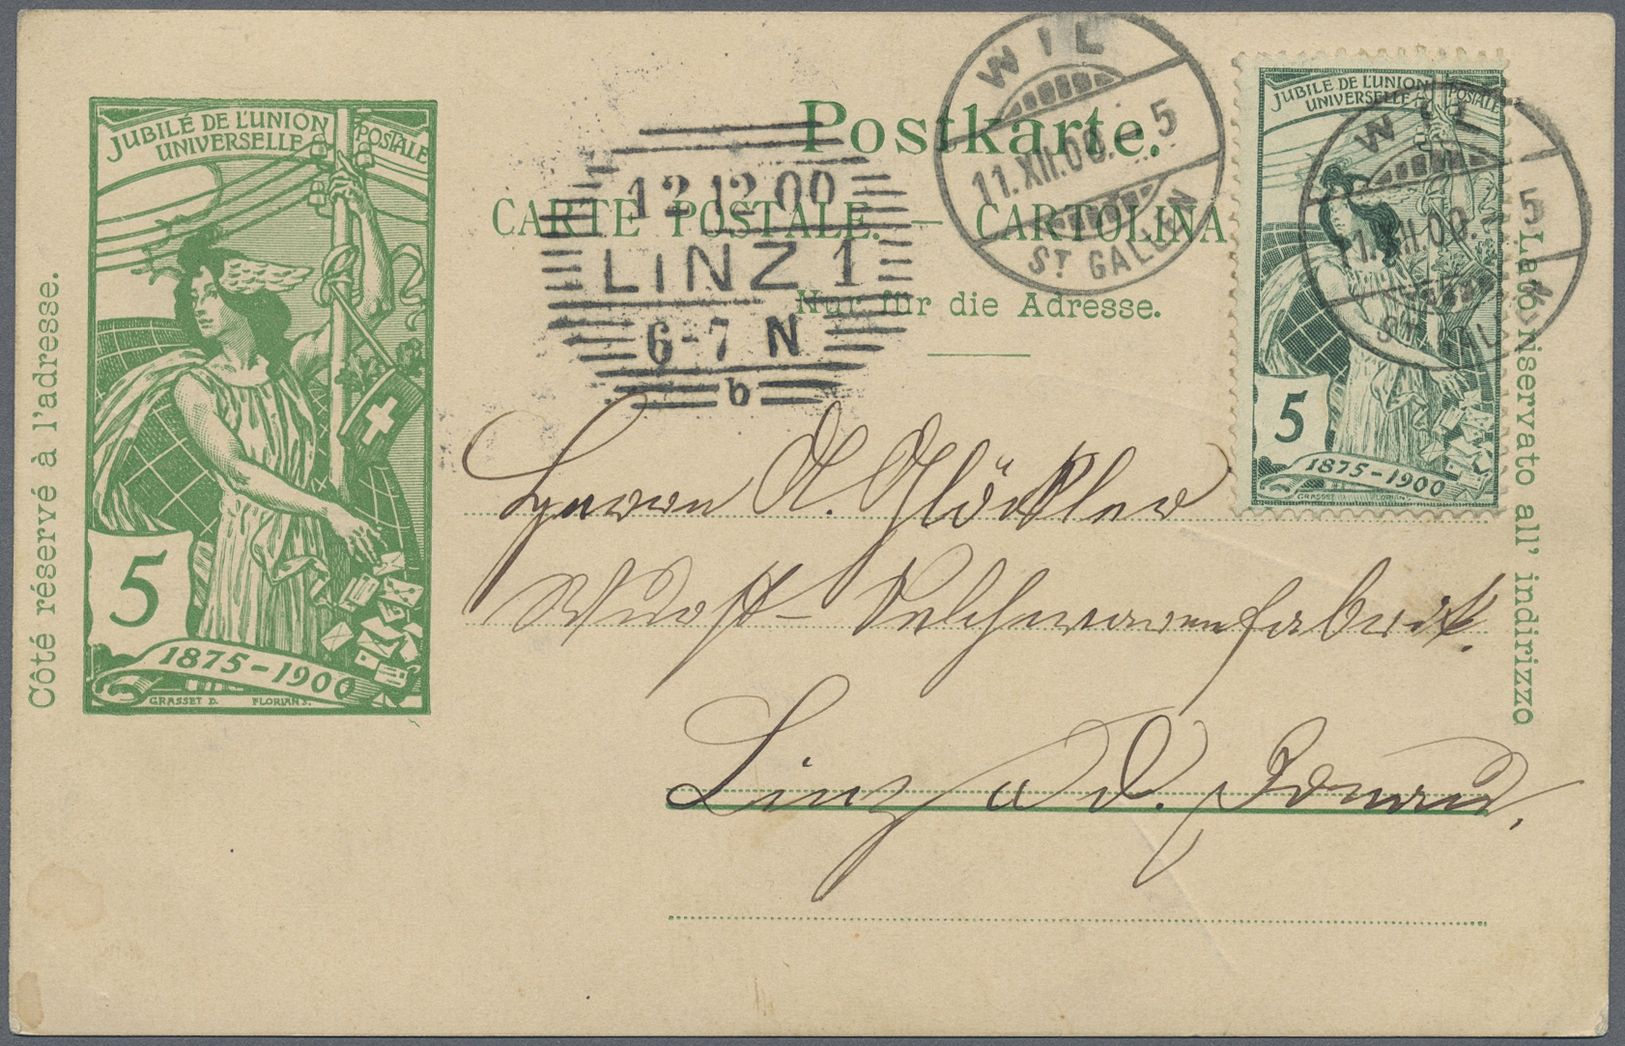 JUBILÉ DE L'UNION POSTALE
UNIVERSELLE
5
1875-1900
GRASSET D. FLORIAN S.
Côté réservé à l'adresse.
Postkarte.
CARTE POSTALE. — CARTOLINA
Nur für die Adresse.
12.12.00
LINZ 1
6-7 N
b
WIL
11.XII.00.-5
ST GALLEN
JUBILÉ DE L'UNION POSTALE
UNIVERSELLE
5
1875-1900
GRASSET D. FLORIAN S.
WIL
11.XII.00.-5
ST GALLEN
Lato riservato all' indirizzo
Herrn A. Glöckler
Wurst- Selchwarenfabrik.
Linz a d. Donau.